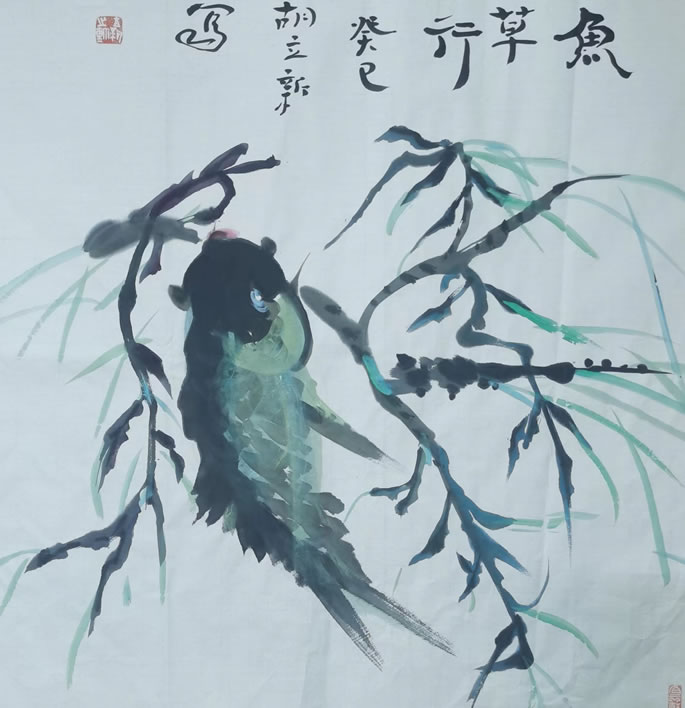 魚草行
癸巳
胡立新
写